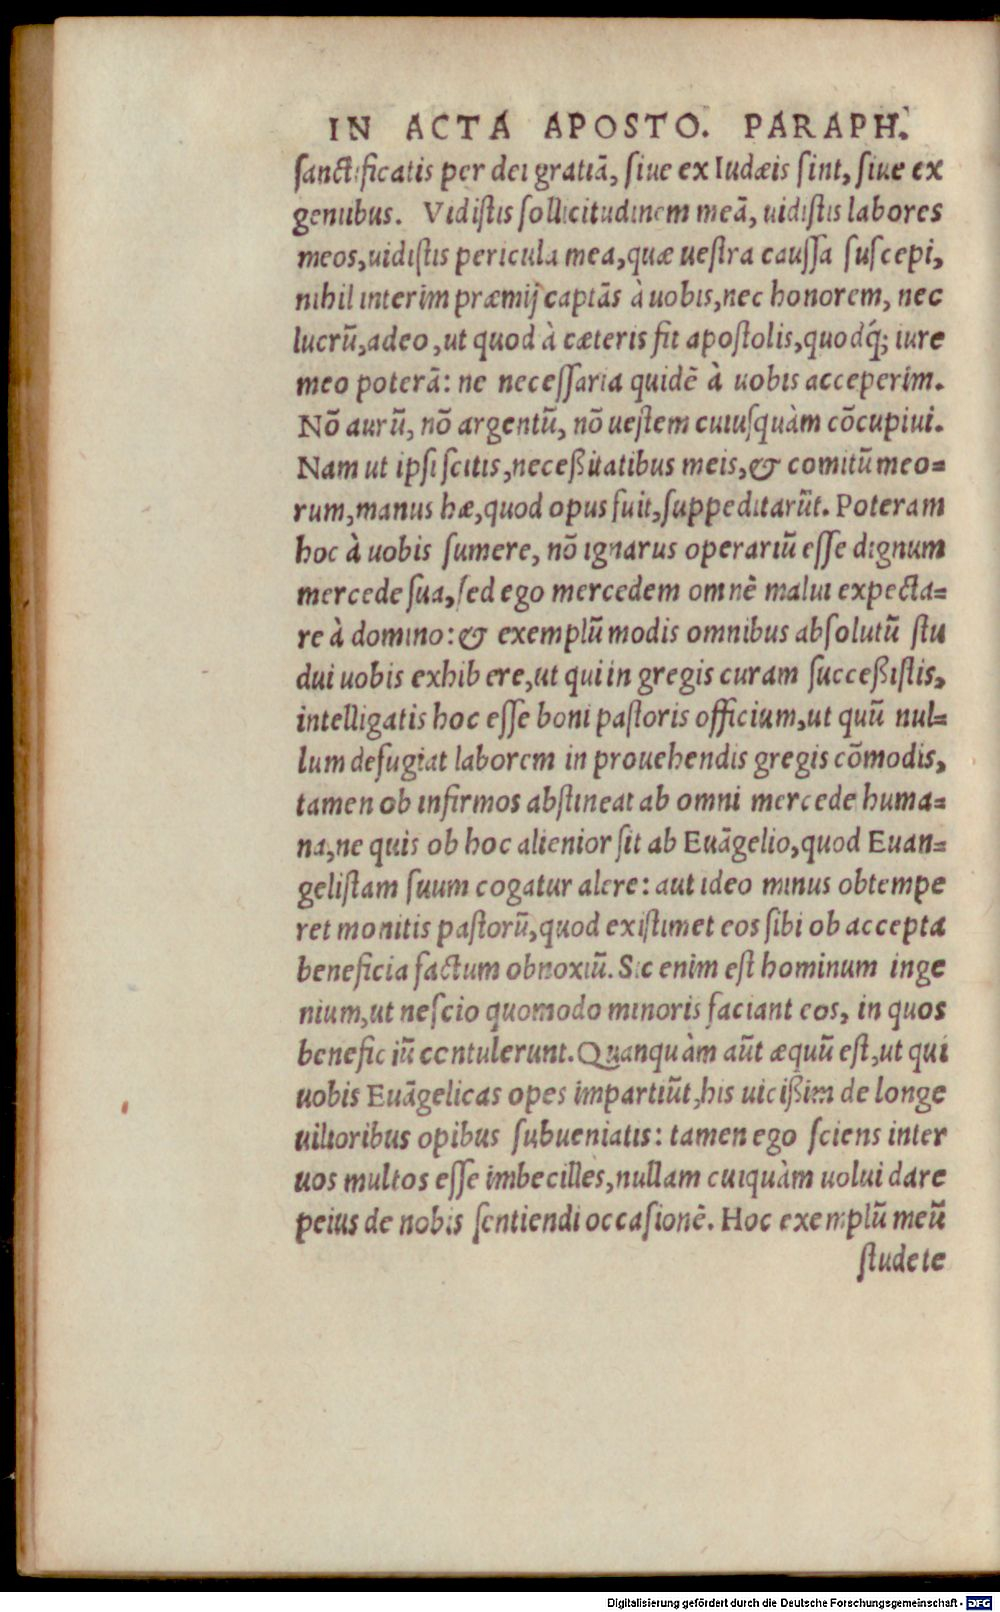 IN ACTA APOSTO. PARAPH.
ſanctificatis per dei gratiã, ſiue ex Iudæis ſint, ſiue ex
gentibus. Vidiſtis ſollicitudinem meã, uidiſtis labores
meos, uidiſtis pericula mea, quæ ueſtra cauſſa ſuſcepi,
nihil interim præmij captãs à uobis, nec honorem, nec
lucrũ, adeo, ut quod à cæteris fit apoſtolis, quodq́; iure
meo poterã: ne neceſſaria quidẽ à uobis acceperim.
Nõ aurũ, nõ argentũ, nõ ueſtem cuiuſquàm cõcupiui.
Nam ut ipſi ſcitis, neceßitatibus meis, & comitũ meo=
rum, manus hæ, quod opus fuit, ſuppeditarũt. Poteram
hoc à uobis ſumere, nõ ignarus operariũ eſſe dignum
mercede ſua, ſed ego mercedem omnẽ malui expecta=
re à domino: & exemplũ modis omnibus abſolutũ ſtu
dui uobis exhibere, ut qui in gregis curam ſucceßiſtis,
intelligatis hoc eſſe boni paſtoris officium, ut quũ nul=
lum defugiat laborem in prouehendis gregis cõmodis,
tamen ob infirmos abſtineat ab omni mercede huma=
na, ne quis ob hoc alienior ſit ab Euãgelio, quod Euan=
geliſtam ſuum cogatur alere: aut ideo minus obtempe
ret monitis paſtorũ, quod exiſtimet eos ſibi ob accepta
beneficia factum obnoxiũ. Sic enim eſt hominum inge
nium, ut neſcio quomodo minoris faciant eos, in quos
beneficiũ contulerunt. Quanquàm aũt æquũ eſt, ut qui
uobis Euãgelicas opes impartiũt, his uicißim de longe
uilioribus opibus ſubueniatis: tamen ego ſciens inter
uos multos eſſe imbecilles, nullam cuiquàm uolui dare
peius de nobis ſentiendi occaſionẽ. Hoc exemplũ meũ
ſtudete
Digitalisierung gefördert durch die Deutsche Forschungsgemeinschaft - DFG